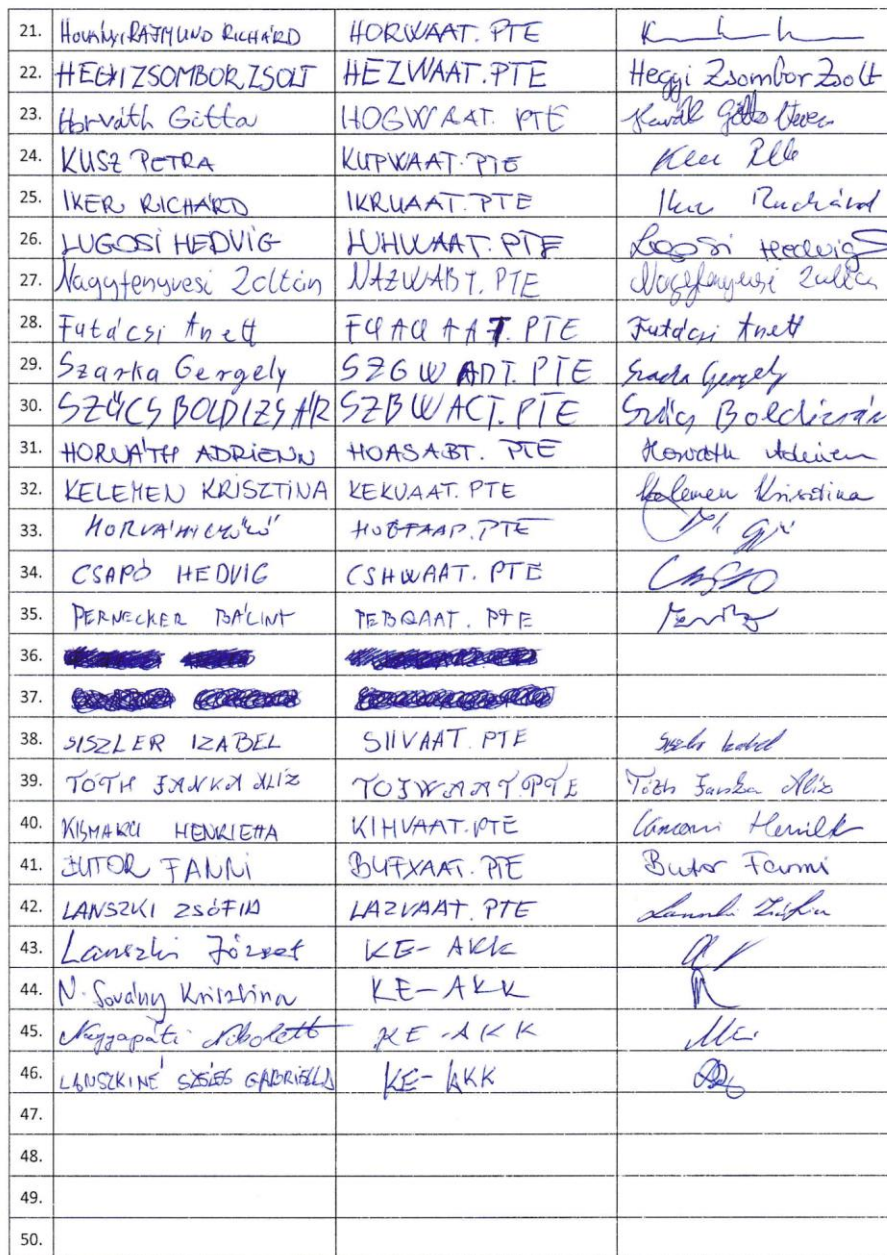 21. HOVÁNYI RAJMUND RICHÁRD HORWAAT.PTE
22. HEGYI ZSOMBOR ZSOLT HEZWAAT.PTE Hegyi Zsombor Zsolt
23. Horváth Gitta HOGWAAT.PTE
24. KUSZ PETRA KUPWAAT.PTE
25. IKER RICHÁRD IKRUAAT.PTE Iker Richárd
26. LUGOSI HEDVIG LUHWAAT.PTE Lugosi Hedvig
27. Nagyfenyvesi Zoltán NAZWABT.PTE Nagyfenyvesi Zoltán
28. Futácsi Anett FUAUAAT.PTE Futácsi Anett
29. Szarka Gergely SZGWADT.PTE Szarka Gergely
30. SZŰCS BOLDIZSÁR SZBWACT.PTE Szűcs Boldizsár
31. HORVÁTH ADRIENN HOASABT.PTE Horváth Adrienn
32. KELEMEN KRISZTINA KEKVAAT.PTE Kelemen Krisztina
33. HORVÁTH
34. CSAPÓ HEDVIG CSHWAAT.PTE
35. PERNECKER BÁLINT PEBQAAT.PTE
36.
37.
38. SISZLER IZABEL SIIVAAT.PTE Siszler Izabel
39. TÓTH JANKA ALÍZ TOJWAAT.PTE Tóth Janka Alíz
40. HENRIETTA KIHVAAT.PTE
41. BUTOR FANNI BUFXAAT.PTE Butor Fanni
42. LANSZKI ZSÓFIA LAZVAAT.PTE Lanszki Zsófia
43. Lanszki József KE-AKK
44. N. Sovány Krisztina KE-AKK
45. Nagyapáti Nikolett KE-AKK
46. LANSZKINÉ SZÉLES GABRIELLA KE-AKK
47.
48.
49.
50.